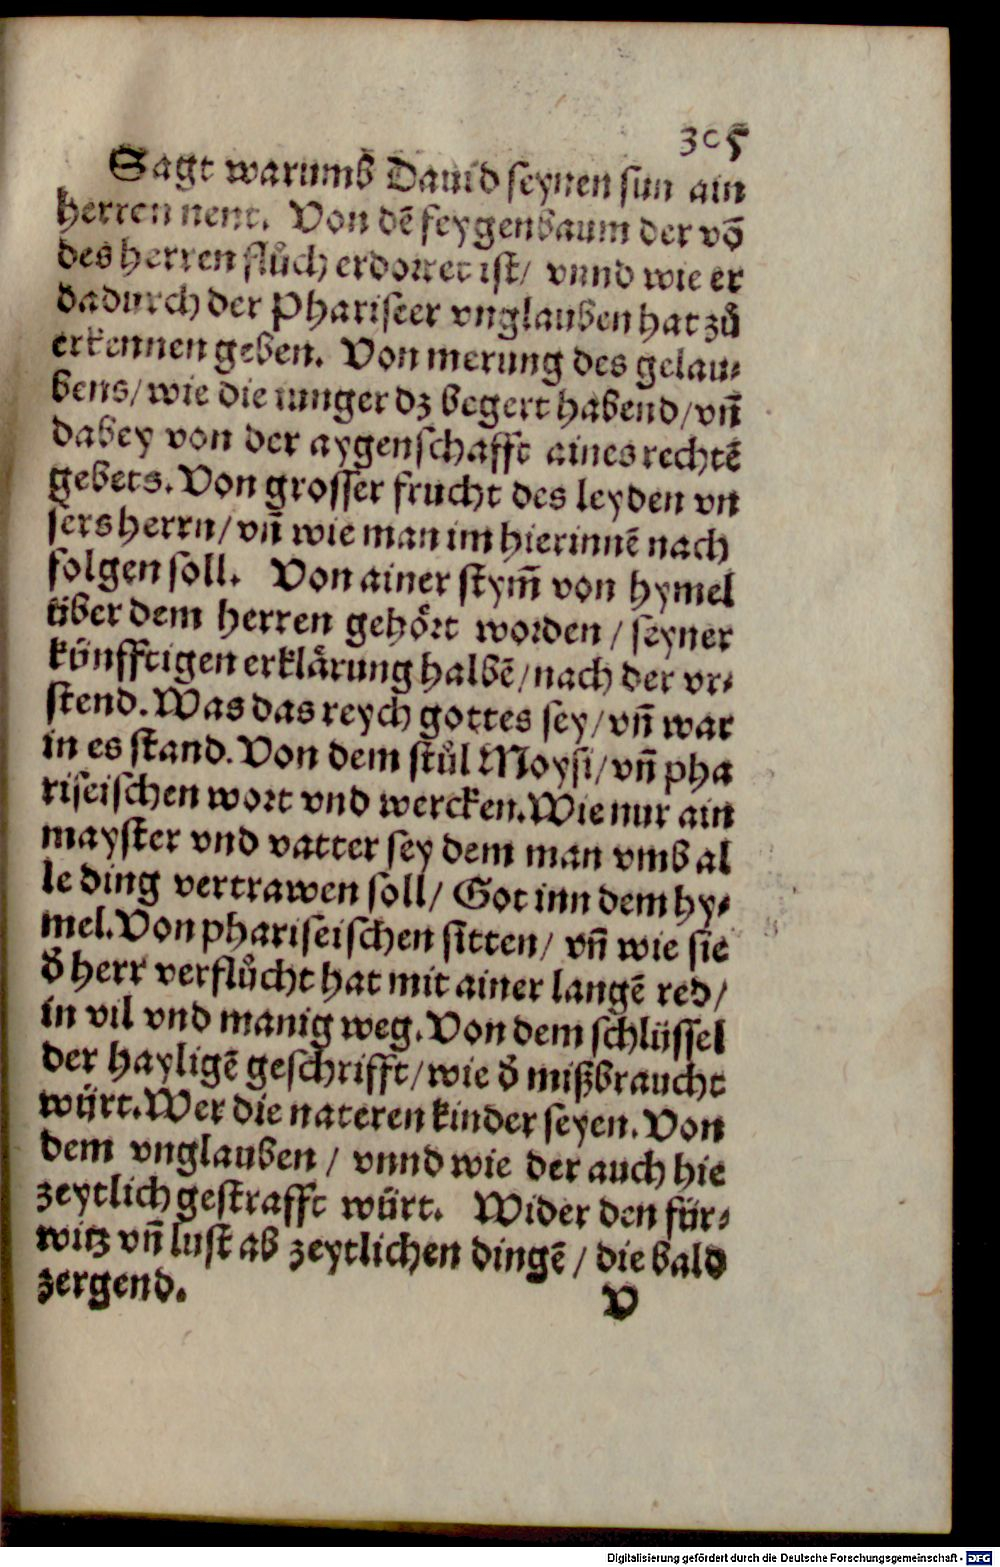 305
Sagt warumb Dauid seynen sun ain
herren nent. Von dē feygenbaum der vō
des herren flůch erdorret ist/ vnnd wie er
dadurch der Phariseer vnglauben hat zů
erkennen geben. Von merung des gelau⸗
bens/ wie die iunger dz begert habend/ vñ
dabey von der aygenschafft aines rechtē
gebets. Von grosser frucht des leyden vn
sers herrn/ vñ wie man im hierinnē nach
folgen soll. Von ainer stym̄ von hymel
über dem herren gehoͤrt worden/ seyner
künfftigen erklaͤrung halbē/ nach der vr⸗
stend. Was das reych gottes sey/ vñ war
in es stand. Von dem stůl Moysi/ vñ pha
riseischen wort vnd wercken. Wie nur ain
mayster vnd vatter sey dem man vmb al
le ding vertrawen soll/ Got inn dem hy⸗
mel. Von phariseischen sitten/ vñ wie sie
ð herr verflůcht hat mit ainer langē red/
in vil vnd manig weg. Von dem schlüssel
der hayligē geschrifft/ wie ð mißbraucht
würt. Wer die nateren kinder seyen. Von
dem vnglauben/ vnnd wie der auch hie
zeytlich gestrafft würt. Wider den für⸗
witz vñ lust ab zeytlichen dingē/ die bald
zergend.
V
Digitalisierung gefördert durch die Deutsche Forschungsgemeinschaft - DFG